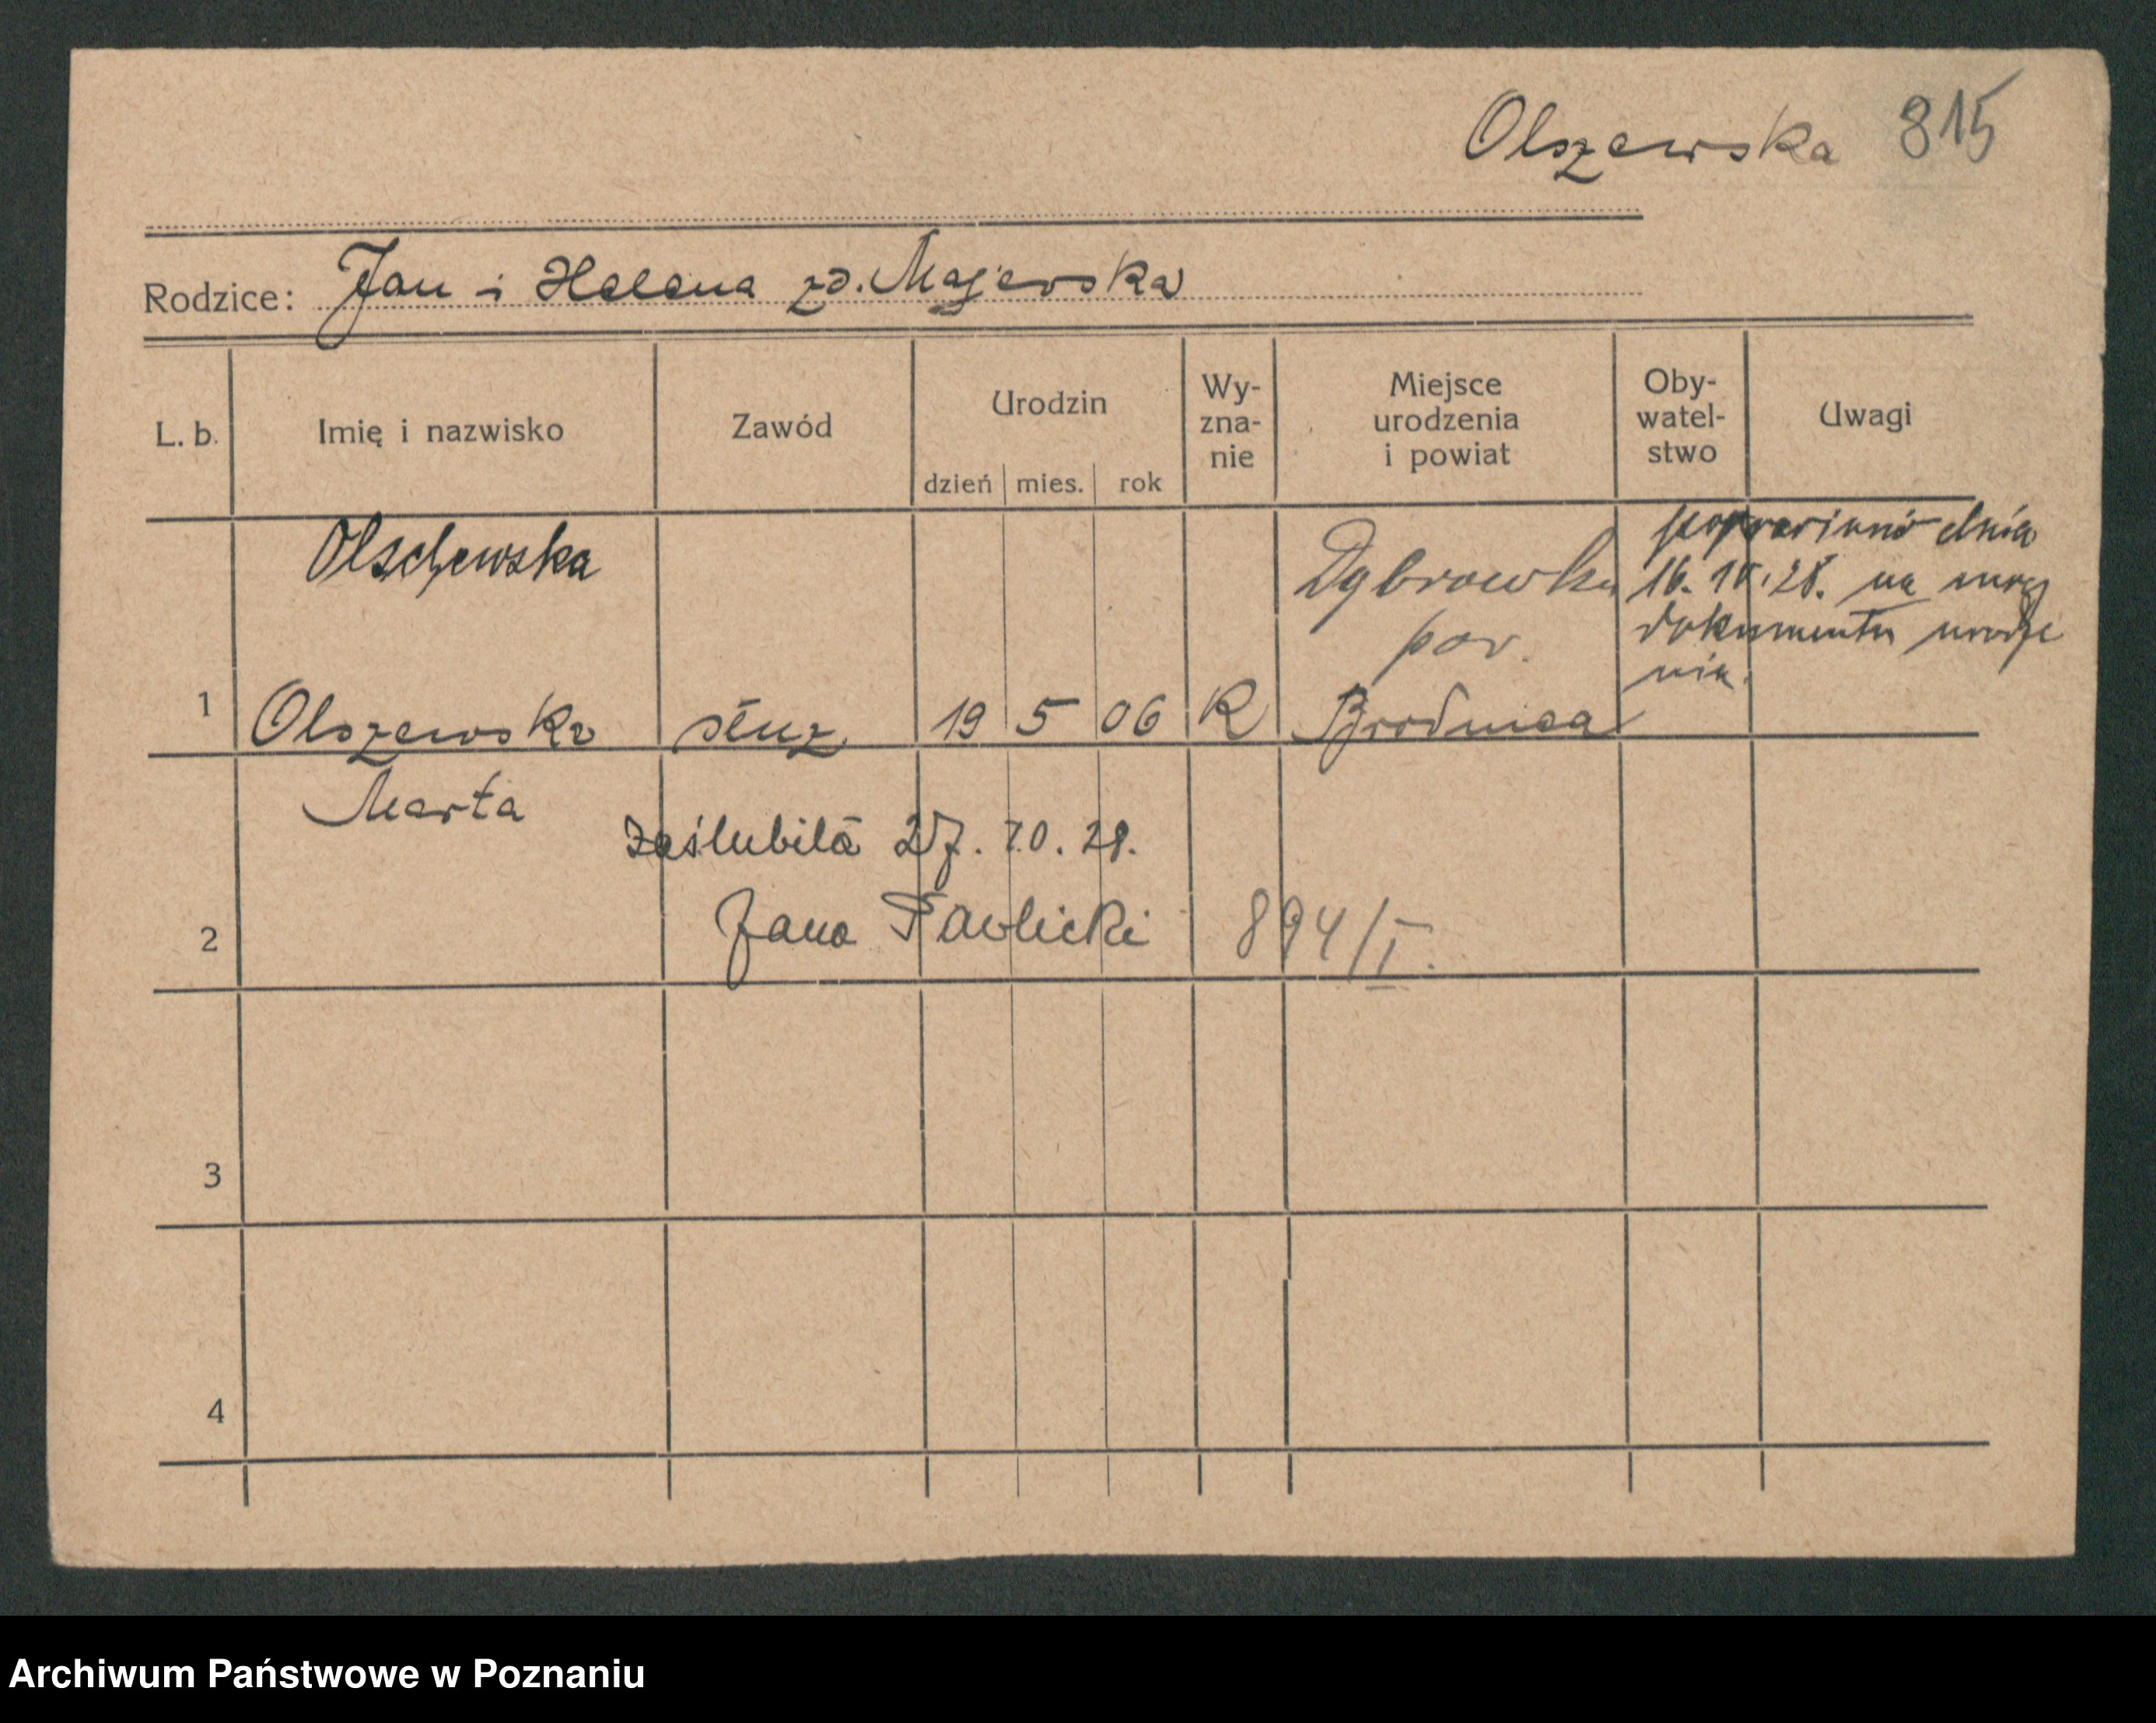 Olszewska 815
Rodzice: Jan i Helena zd. Majewska
L. b.
Imię i nazwisko
Zawód
Urodzin
dzień mies. rok
Wy-
zna-
nie
Miejsce
urodzenia
i powiat
Oby-
watel-
stwo
Uwagi
Olschewska
1 Olszewska służ. 19 5 06 K
Marta
Dąbrowka
pow.
Brodnica
poprawiono dnia
16. 28. na mocy
dokumentu urodze
nia.
zaślubiła 27. 10. 28.
Jana Pawlicki 894/I.
2
3
4
Archiwum Państwowe w Poznaniu